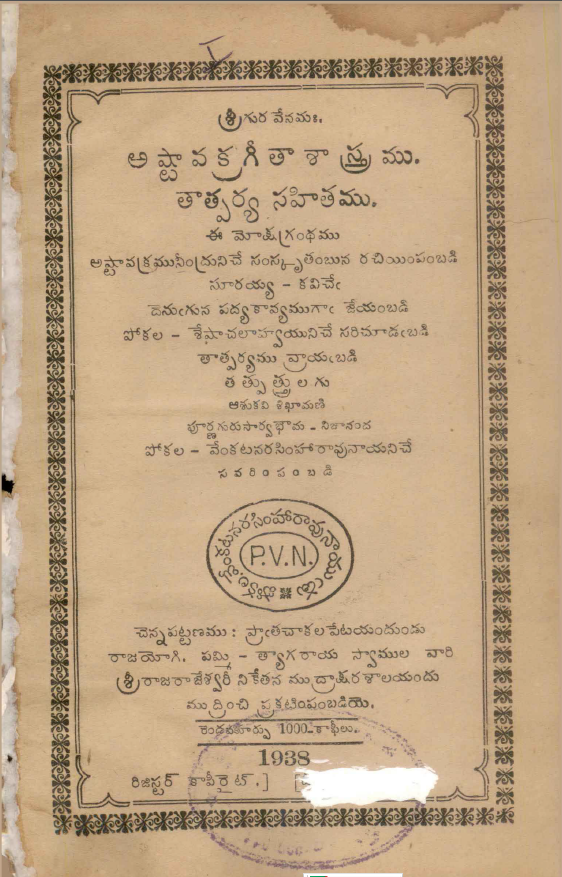 శ్రీగుర వేనమః.
అ ష్టా వ క్ర గీ తా శా స్త్ర ము.
తాత్పర్య సహితము.
ఈ మోక్షగ్రంథము
అష్టావక్రమునీంద్రునిచే సంస్కృతంబున రచియింపంబడి
సూరయ్య - కవిచేఁ
దెనుఁగున పద్యకావ్యముగాఁ జేయంబడి
పోకల - శేషాచలాహ్వయునిచే సరిచూడఁబడి
తాత్పర్యము వ్రాయఁబడి
త త్పు త్త్రు ల గు
ఆశుకవి శిఖామణి
పూర్ణగురుసార్వభౌమ - నిజానంద
పోకల - వేంకటనరసింహారావునాయనిచే
స వ రిం ప ం బ డి
వేంకటనరసింహారావునాయుఁడు
P.V.N.
చెన్నపట్టణము : ప్రాఁతచాకలపేటయందుండు
రాజయోగి. పమ్మి - త్యాగరాయ స్వాముల వారి
శ్రీరాజరాజేశ్వరీ నికేతన ముద్రాక్షరశాలయందు
ము ద్రించి ప్రకటింపంబడియె.
రెండవకూర్పు 1000 కాఫీలు.
1938
రిజిస్టర్ కాపీరైట్.] [